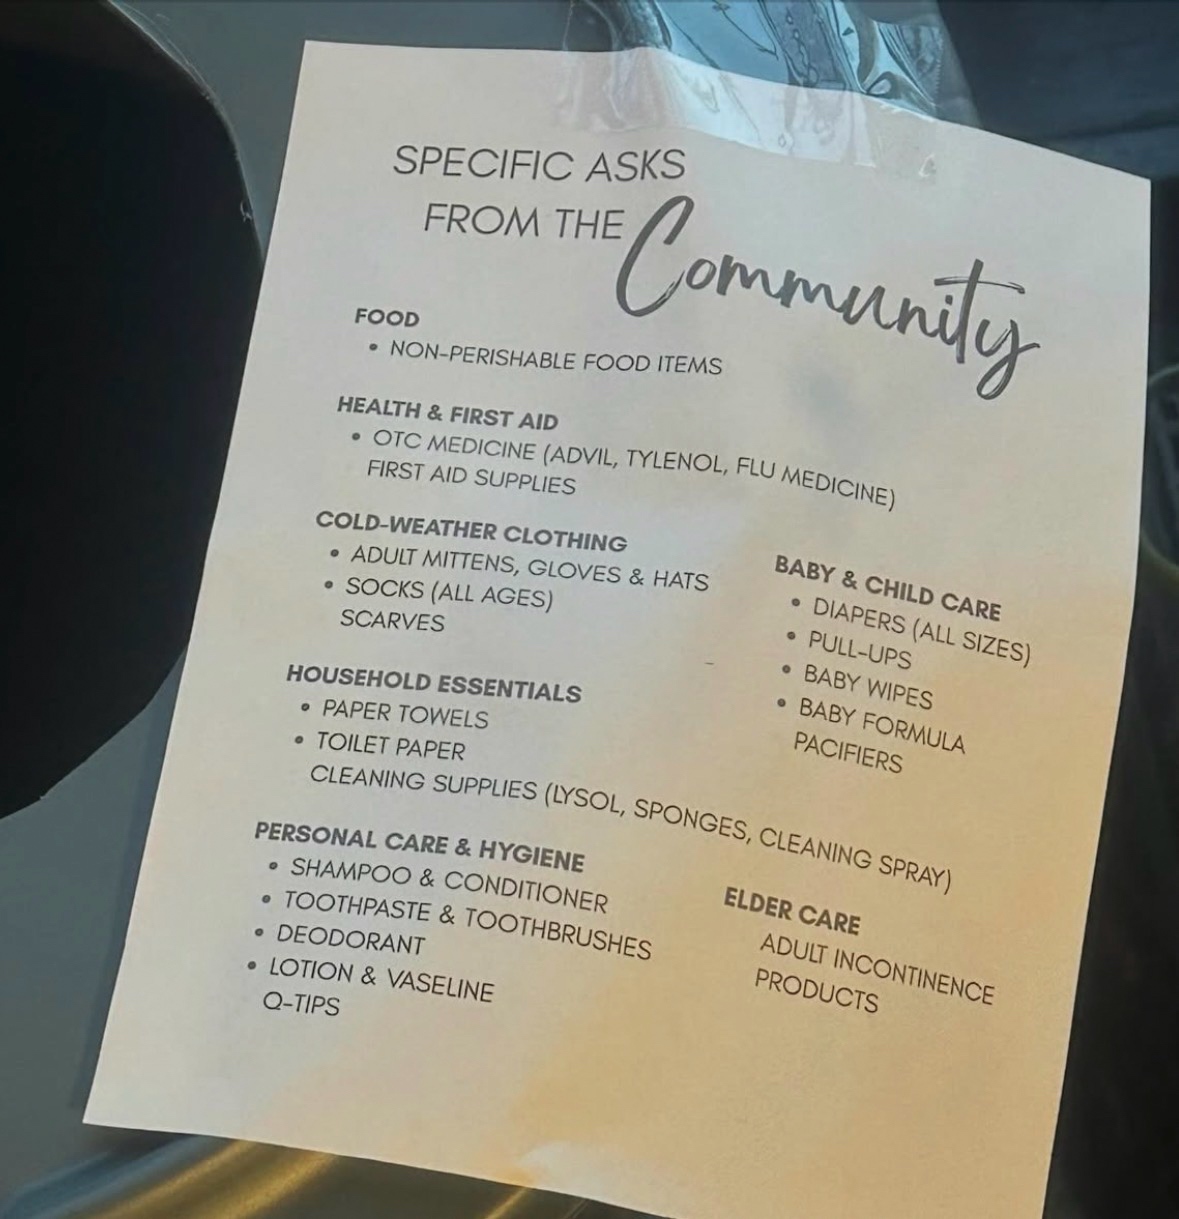 SPECIFIC ASKS
FROM THE Community
FOOD
• NON-PERISHABLE FOOD ITEMS
HEALTH & FIRST AID
• OTC MEDICINE (ADVIL, TYLENOL, FLU MEDICINE)
FIRST AID SUPPLIES
COLD-WEATHER CLOTHING
• ADULT MITTENS, GLOVES & HATS
• SOCKS (ALL AGES)
SCARVES
HOUSEHOLD ESSENTIALS
• PAPER TOWELS
• TOILET PAPER
CLEANING SUPPLIES (LYSOL, SPONGES, CLEANING SPRAY)
PERSONAL CARE & HYGIENE
• SHAMPOO & CONDITIONER
• TOOTHPASTE & TOOTHBRUSHES
• DEODORANT
• LOTION & VASELINE
Q-TIPS
BABY & CHILD CARE
• DIAPERS (ALL SIZES)
• PULL-UPS
• BABY WIPES
• BABY FORMULA
PACIFIERS
ELDER CARE
ADULT INCONTINENCE
PRODUCTS